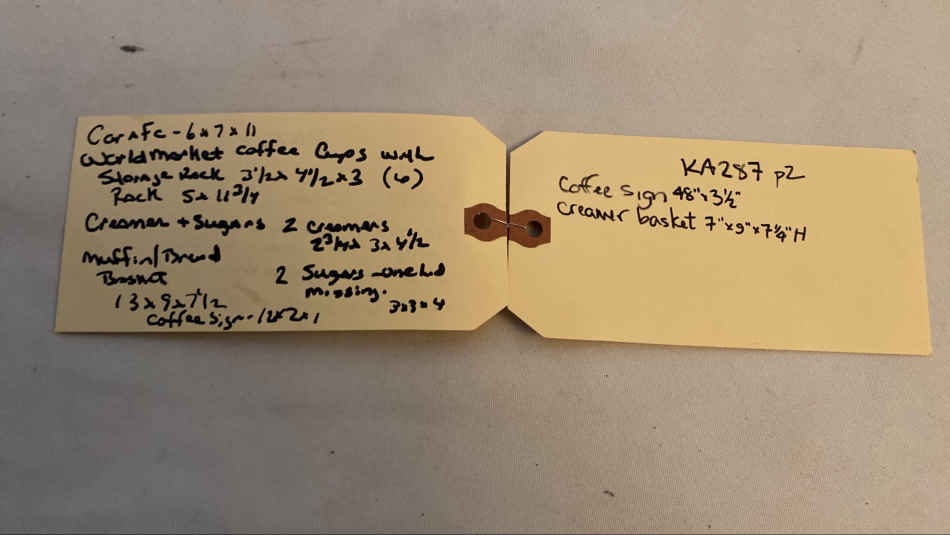 Carafe - 6x7x11
World market coffee Cups with
Storage Rack 3 1/2 x 4 1/2 x 3 (6)
Rack 5x 11 3/4
Creamer + Sugars 2 creamers
2 3/4 x 3 x 4 1/2
Muffin/Bread
Basket
13 x 9 x 7 1/2
2 Sugars - one lid
missing.
3x3x4
Coffee Sign - 12x2x1
KA287 p2
Coffee Sign 48"x3½"
Creamer basket 7"x9"x7¼"H